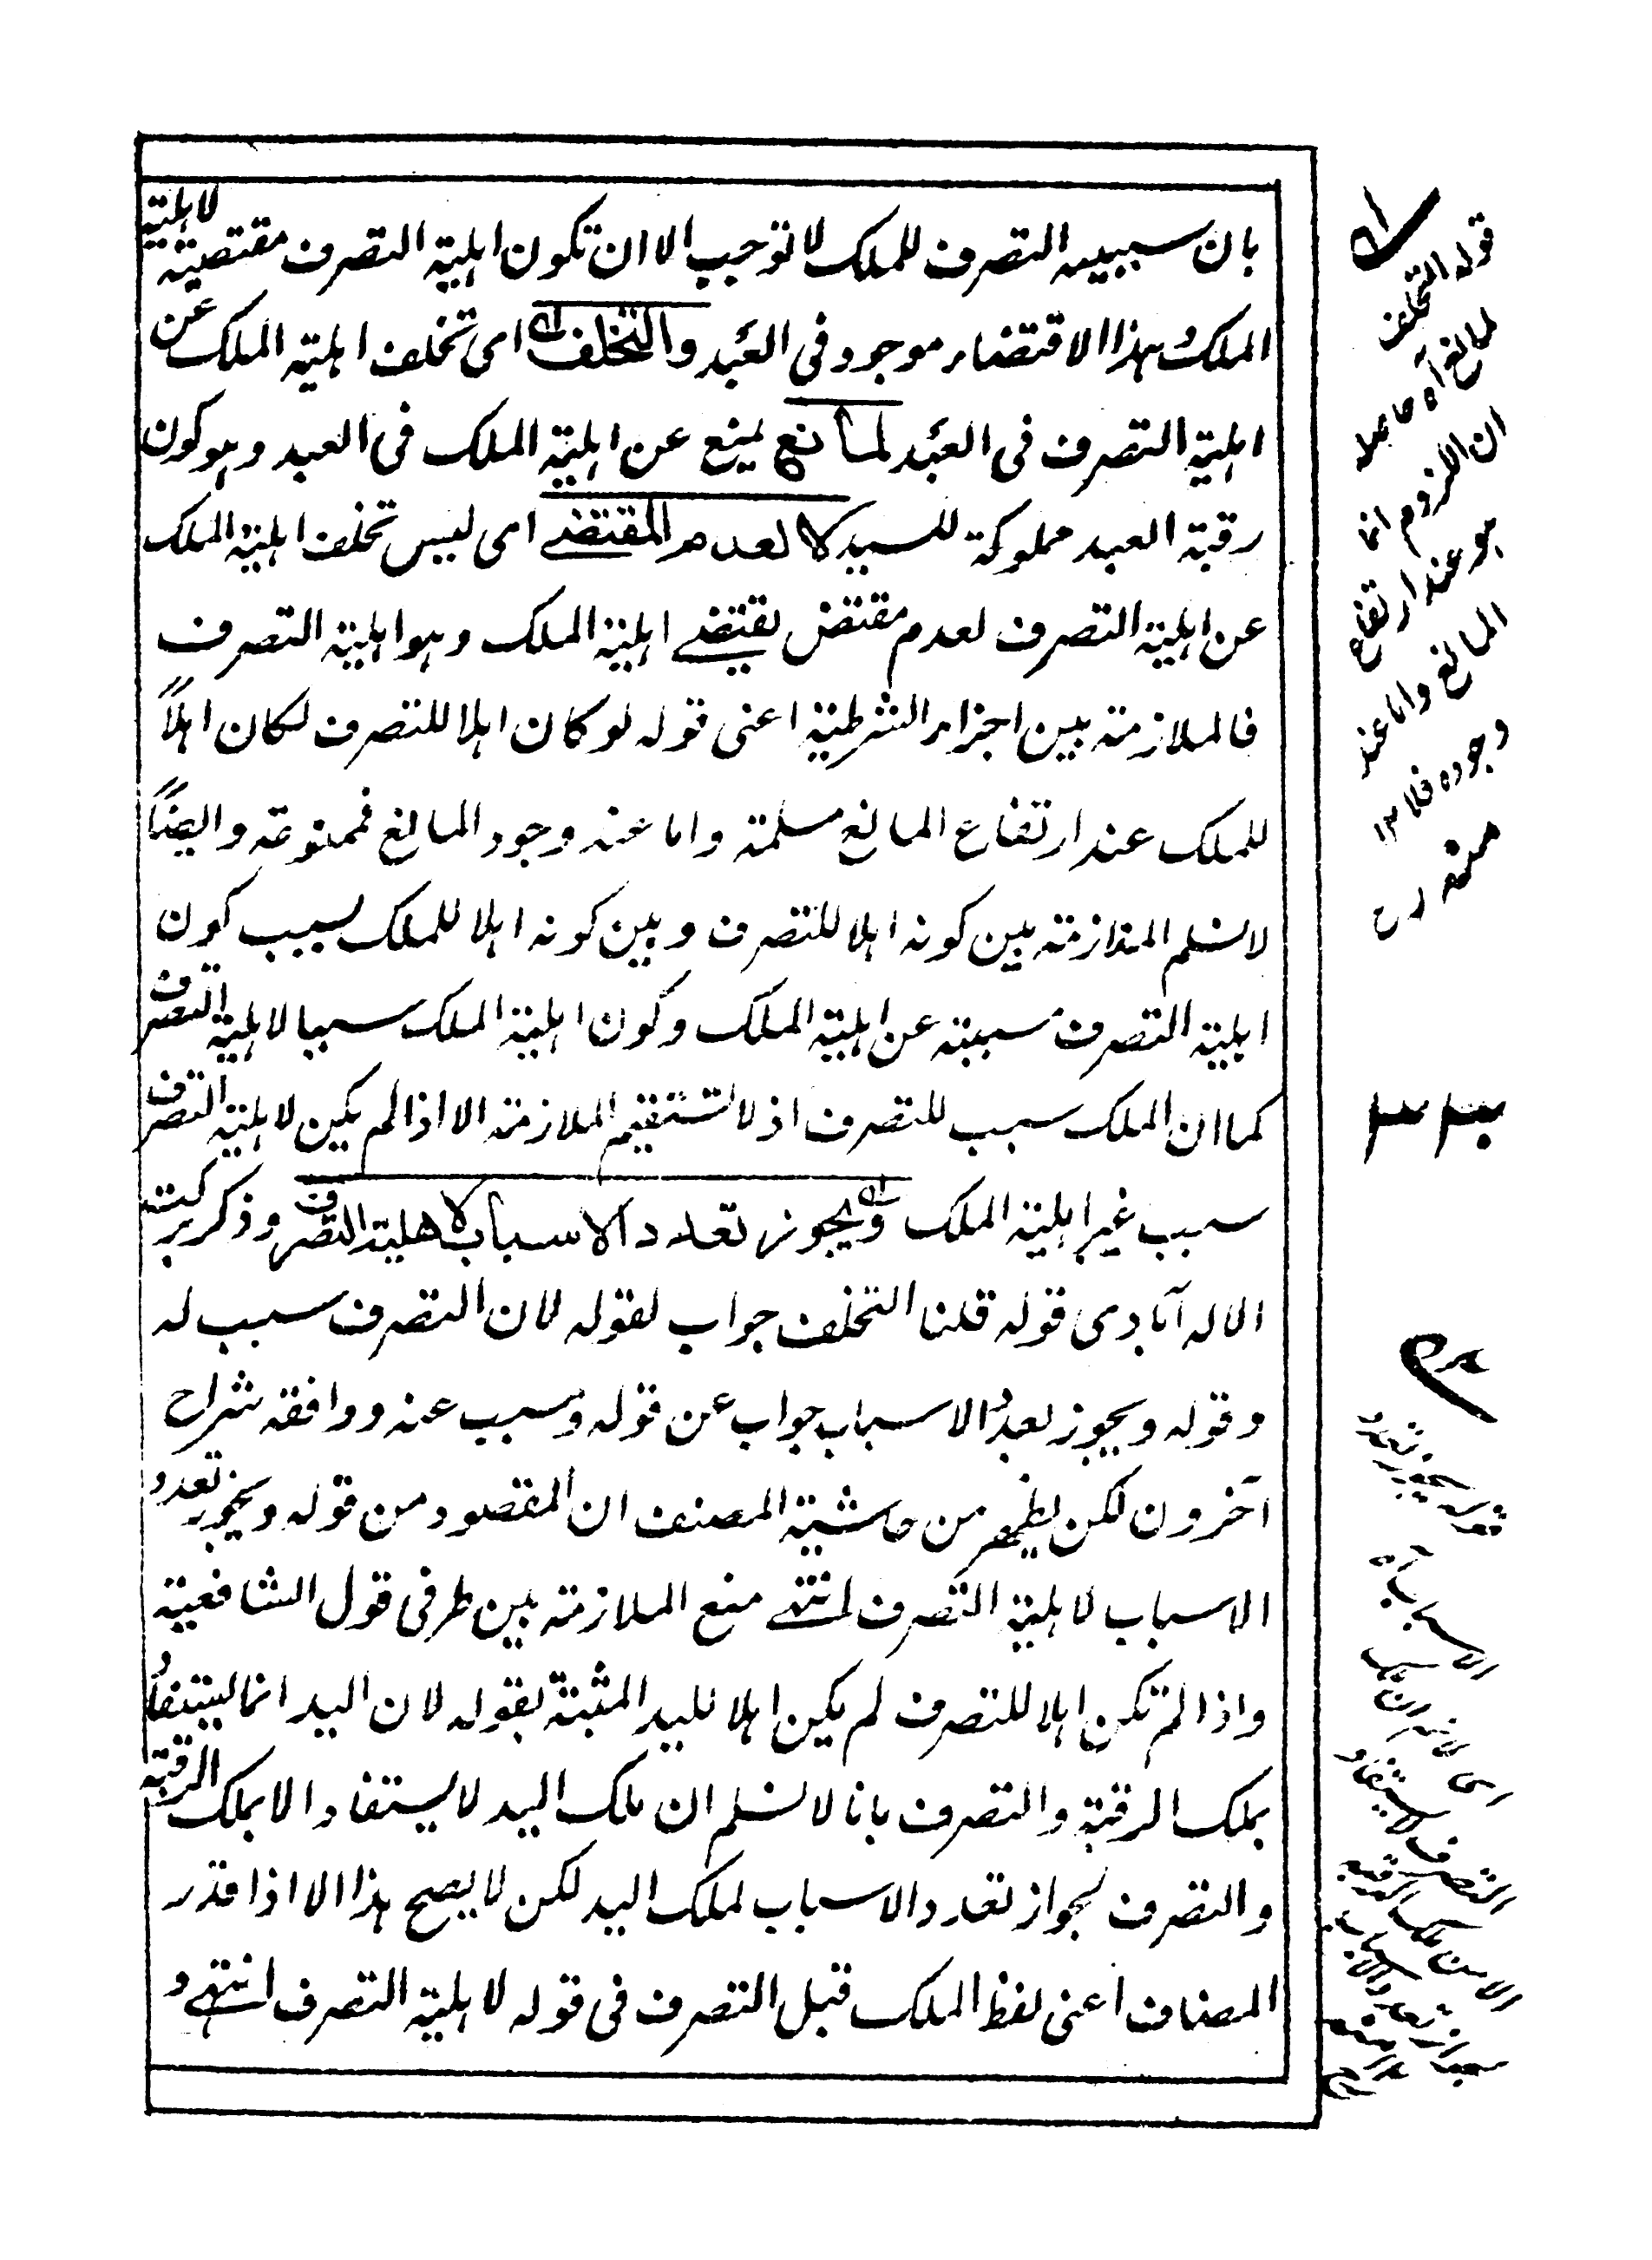 بان سببية التصرف للملك لا توجب الا ان تكون اهلية التصرف مقتضية لاهلية
الملك وهذا الاقتضاء موجود في العبد والتخلف اى تخلف اهلية الملك عن
اهلية التصرف فى العبد لمانع يمنع عن اهلية الملك فى العبد وهو كون
رقبة العبد مملوكة للسيد لا لعدم المقتضى اى ليس تخلف اهلية الملك
عن اهلية التصرف لعدم مقتض يقتضى اهلية الملك وهو اهلية التصرف
فالملازمة بين اجزاء الشرطية اعنى قوله لو كان اهلا للتصرف لكان اهلاً
للملك عند ارتفاع المانع مسلمة واما عند وجود المانع فممنوعة وايضاً
لا نسلم الملازمة بين كونه اهلا للتصرف وبين كونه اهلا للملك بسبب كون
اهلية التصرف مسببة عن اهلية الملك وكون اهلية الملك سببا لاهلية التصرف
كما ان الملك سبب للتصرف اذ لا تستقيم الملازمة الا اذا لم يكن لاهلية التصرف
سبب غير اهلية الملك ويجوز تعدد الاسباب لاهلية التصرف وذكر بركت
الاله آبادى قوله قلنا التخلف جواب لقوله لان التصرف سبب له
وقوله ويجوز تعدد الاسباب جواب عن قوله ومسبب عنه ووافقه شراح
آخرون لكن يظهر من حاشية المصنف ان المقصود من قوله ويجوز تعدد
الاسباب لاهلية التصرف انتهى منع الملازمة بين طرفى قول الشافعية
واذا لم تكن اهلا للتصرف لم يكن اهلا لليد المثبتة بقوله لان اليد انما يستفاد
بملك الرقبة والتصرف بانا لا نسلم ان ملك اليد لا يستفاد الا بملك الرقبة
والتصرف لجواز تعدد الاسباب لملك اليد لكن لا يصح هذا الا اذا قدر
المضاف اعنى لفظ الملك قبل التصرف فى قوله لاهلية التصرف انتهى و
قوله التخلف
لمانع آه حاصله
ان اللزوم انما
هو عند ارتفاع
المانع واما عند
وجوده فلا ١٢
منه رح
قوله يجوز تعدد
الاسباب آه